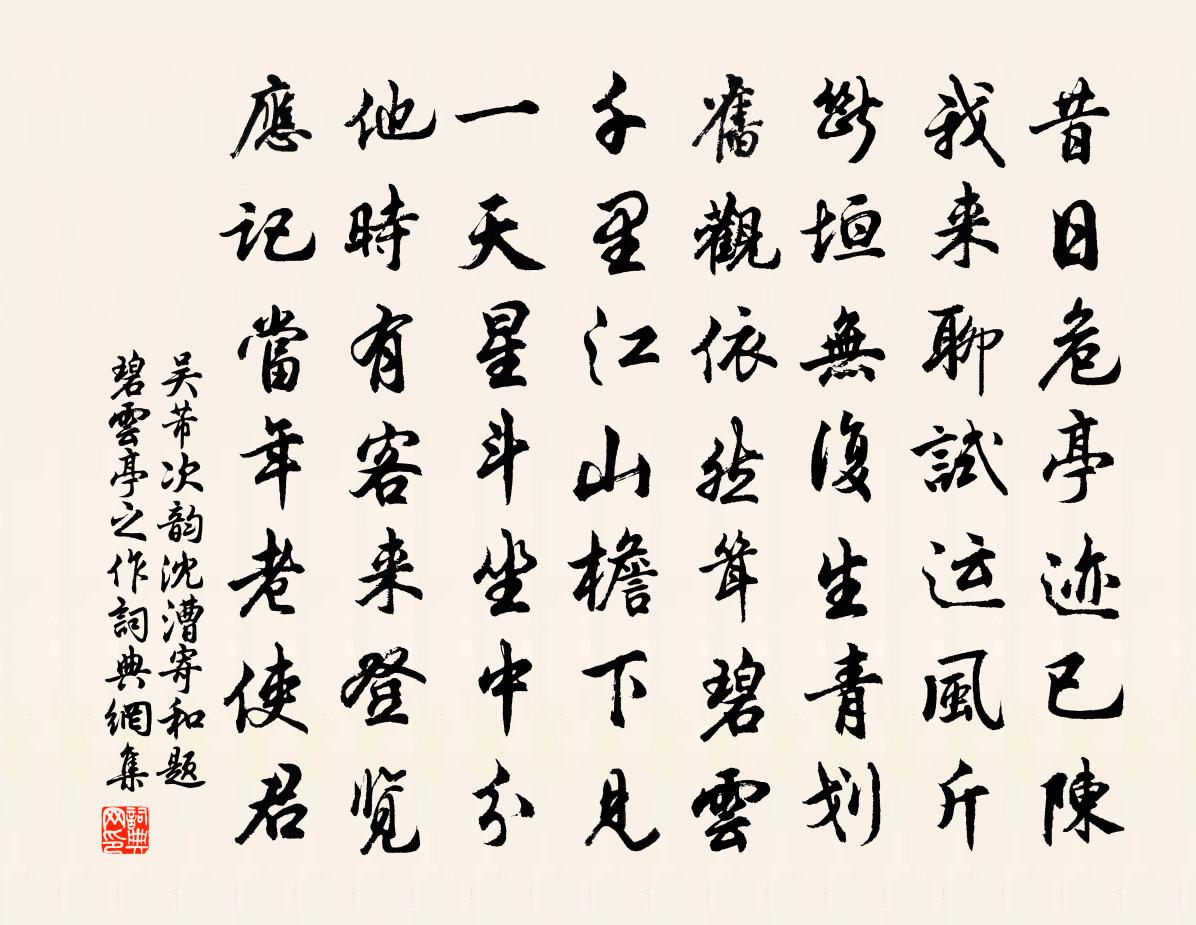 昔日危亭迹已陳
我来聊試运風斤
斷垣無復生青划
舊觀依然聳碧雲
千里江山檐下見
一天星斗坐中分
他時有客来登览
應记當年老使君
吴芾次韵沈漕寄和题
碧雲亭之作詞典網集
詞典
网印